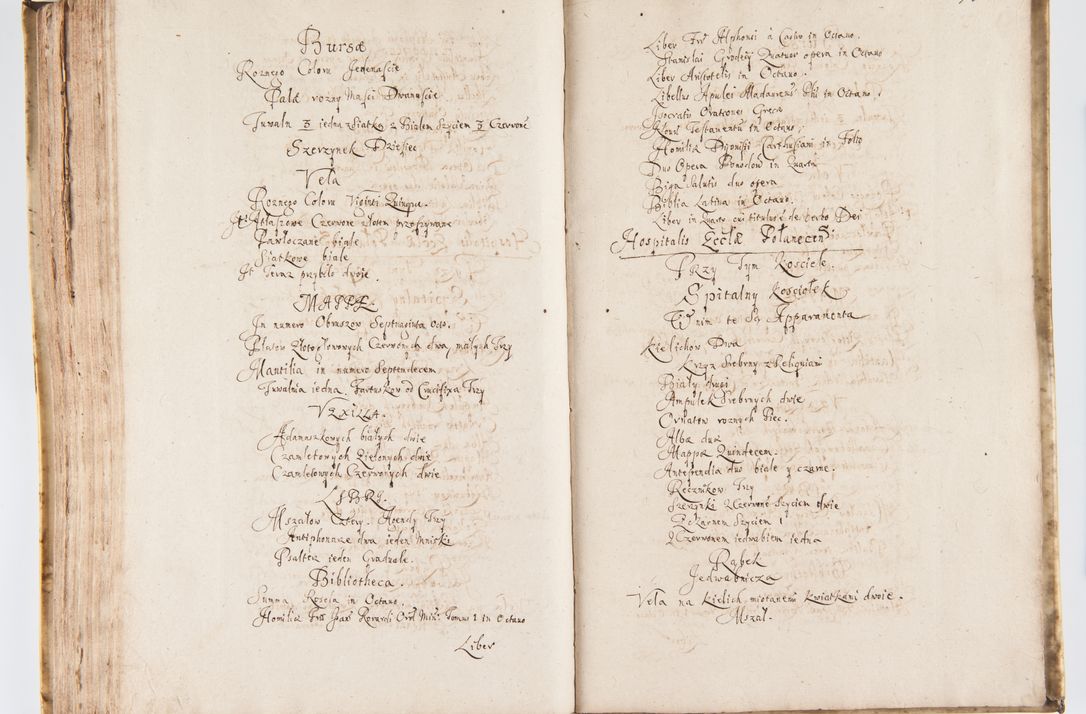 Bursæ
Roznego Coloru Jedenascie
Palæ rozny Masci Dwanascie
Tuwaln 3 iedna z Siatką z Białem Szyciem 3 Czerwone
Szerzynek Dziesiec
Vela
Roznego Coloru Viginti Quinque.
It Atłaszowe Czerwone złotem przeszywane
Pawłoczane białe
Siatkowe białe
It Teraz przybyło dwoie.
MAPPÆ.
In numero Obrusow Septuaginta Octo.
Złotogłowowych Czerwonych dwa, małych Trzy
Mantilia in numero Septendecem
Tuwalnia iedna, Fartuskow od Crucifixa Trzy
VEXILLA.
Adamaszkowych białych dwie
Czamletowych Zielonych dwie
Czamletowych Czerwonych dwie
LIBRI.
Mszałow Cztery. Agendy Trzy
Antiphonarze dwa ieden Mniski
Psałterz ieden Graduale.
Bibliotheca.
Summa Roscia in Octavo.
Homiliæ Frīs Joān Royardi Ord Min: Tomus 1 in Octavo
Liber
Liber Frīs Alphonsi à Castro in Octavo.
Stanislai Grodicij Quatuor opera in Octavo
Liber Aristotelis in Octavo.
Libellus Apulei Madaurens Phi in Octavo.
Isocratis Orationes Græcæ
Novū Testamentū in Octavo;
Homiliæ Dijonisij Carthusiani in Folio
Duo Opera in Quarto
Biga Salutis duo opera
Biblia Latina in Octavo.
Liber in Quarto cui titulus ē de Verbo Dei
Hospitalis Eccłæ Połanecen:
Przy Tym Kosciele.
Spitalny Kosciołek
W nim te Są Apparamenta
Kielichow Dwa
Krzyz Srebrny z Reliquiami
Biały drugi
Ampułek Srebrnych dwie
Ornatow roznych Piec.
Albæ duæ
Mappæ Quindecem.
Antependia duo białe y czarne.
Ręcznikow Trzy
Szerzynki z Czerwone Szyciem dwie
Z Czarnem Szyciem 1
Z Czerwonem iedwabiem iedna
Rąbek
Jedwabnicza
Vela na kielich miotanemi kwiatkami dwoie.
Mszał.